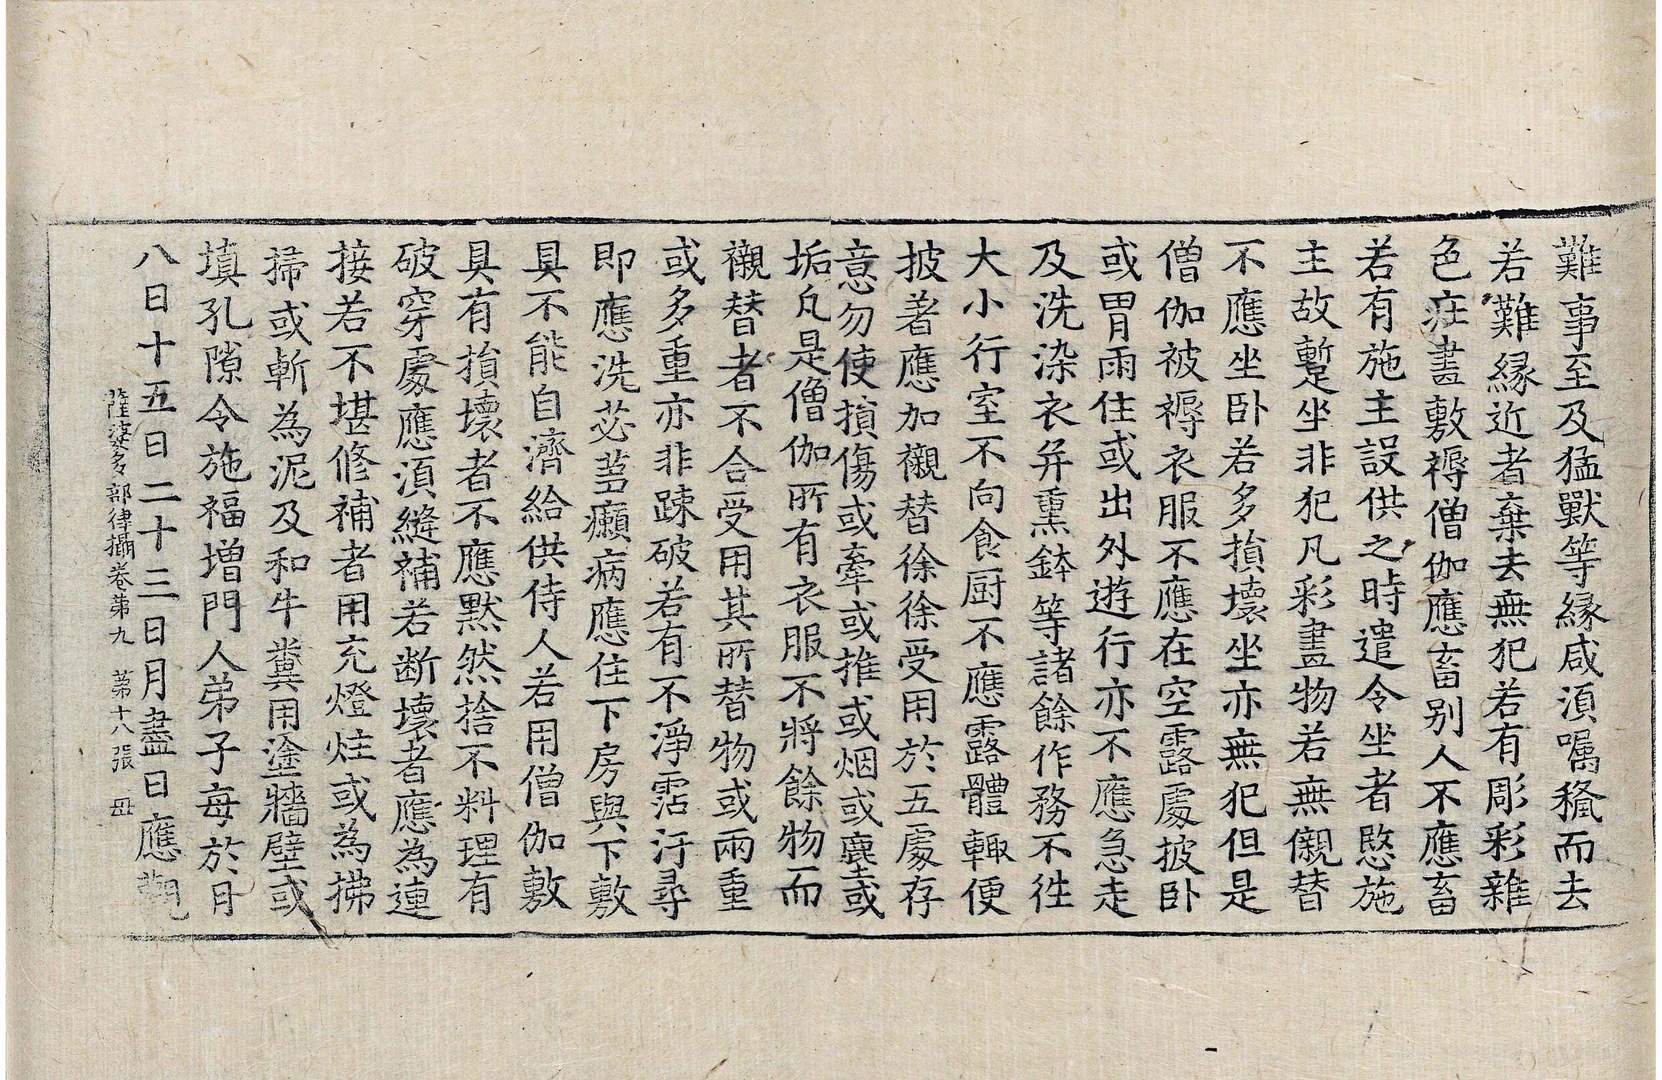 難事至及猛獸等縁咸湏囑䅉而去
若難縁近者棄去無犯若有彫彩雜
色庄畫敷褥僧伽應畜别人不應畜
若有施主設供之時遣令坐者愍施
主故蹔坐非犯凡彩畫物若無儭替
不應坐卧若多損壞坐亦無犯但是
僧伽被褥衣服不應在空露處披卧
或冒雨住或出外遊行亦不應急走
及洗染衣并熏鉢等諸餘作務不徃
大小行室不向食厨不應露體輙便
披著應加襯替徐徐受用於五處存
意勿使損傷或牽或推或烟或塵或
垢凡是僧伽所有衣服不將餘物而
襯替者不合受用其所替物或兩重
或多重亦非踈破若有不淨霑汙尋
即應洗苾蒭癩病應住下房與下敷
具不能自濟給供侍人若用僧伽敷
具有損壞者不應默然捨不料理有
破穿處應湏縫補若断壞者應為連
接若不堪修補者用充燈炷或為拂
掃或斬為泥及和牛糞用塗牆壁或
填孔隙令施福增門人弟子每於月
八日十五日二十三日月盡日應觀
薩婆多部律攝卷第九　第十八張　毋